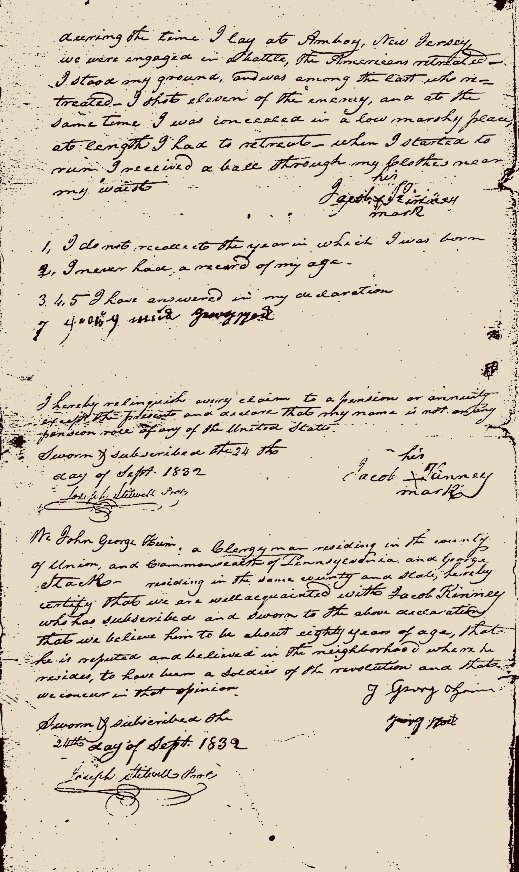 during the time I lay at Amboy, New Jersey,
we were engaged in Battle, the Amereeans retreated—
I stood my ground, and was among the last who re-
treated— I shot eleven of the enemy, and at the
same time I was concealed in a low marshy place,
at length I had to retreat— when I started to
run I received a ball through my Clothes near
my waist
his
Jacob X Kinney
mark
1, I do not recollect the year in which I was born
2, I never had a record of my age -
3. 4. 5 I have answered in my declaration
7
I hereby relinquish every claim to a pension or annuity
except the present and declare that my name is not on any
pension role of any of the United States
Sworn & subscribed the 24 th
day of Sept. 1832
his
Jacob X Kinney
mark
Joseph Stilwell Prot.
We John George Heim, a Clergyman residing in the county
of Union, and Commonwealth of Pennsylvania and George
Stack— residing in the same county and state, hereby
certify that we are well acquainted with Jacob Kinney
who has subscribed and sworn to the above declaration
that we believe him to be about eighty years of age, that
he is reputed and believed in the neighborhood where he
resides, to have been a soldier of the revolution and that
we concur in that opinion
J Georg Heim
Sworn & subscribed the
24th day of Sept. 1832
Joseph Stilwell Prot